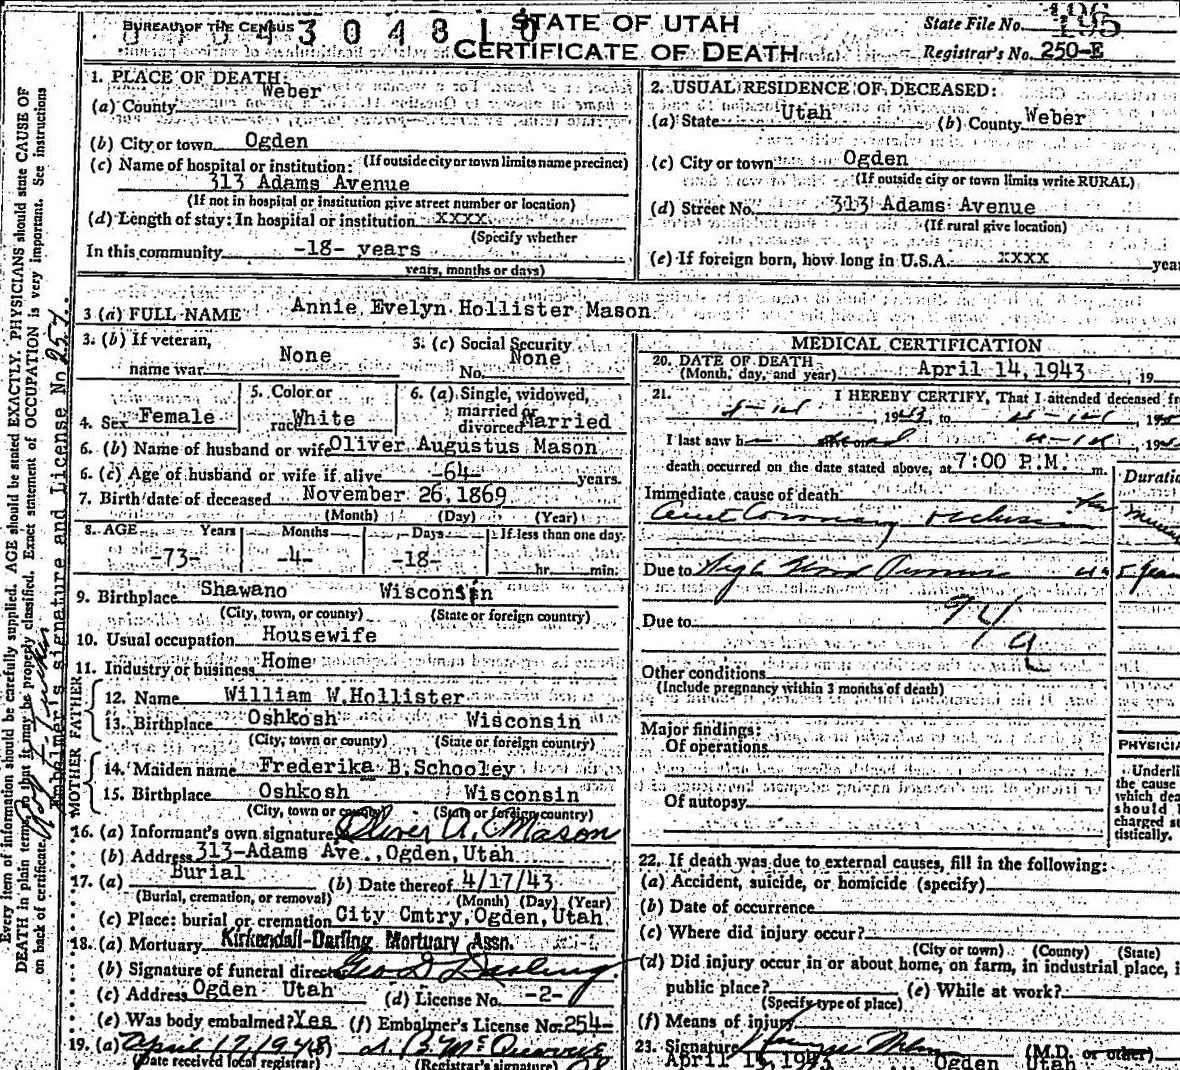 BUREAU OF THE CENSUS
3 0 4 8 1 0
STATE OF UTAH
CERTIFICATE OF DEATH
State File No. 195
Registrar's No. 250-E
1. PLACE OF DEATH:
(a) County Weber
(b) City or town Ogden
(c) Name of hospital or institution: (If outside city or town limits name precinct)
313 Adams Avenue
(If not in hospital or institution give street number or location)
(d) Length of stay: In hospital or institution xxxx
(Specify whether
In this community -18- years
years, months or days)
2. USUAL RESIDENCE OF DECEASED:
(a) State Utah (b) County Weber
(c) City or town Ogden
(If outside city or town limits write RURAL)
(d) Street No. 313 Adams Avenue
(If rural give location)
(e) If foreign born, how long in U.S.A. xxxx year
3 (a) FULL NAME Annie Evelyn Hollister Mason
3. (b) If veteran,
name war None
3. (c) Social Security
No. None
4. Sex Female
5. Color or
race White
6. (a) Single, widowed,
married or
divorced Married
6. (b) Name of husband or wife Oliver Augustus Mason
6. (c) Age of husband or wife if alive -64- years.
7. Birth date of deceased November 26, 1869
(Month) (Day) (Year)
8. AGE Years Months Days If less than one day
-73- -4- -18- hr. min.
9. Birthplace Shawano Wisconsin
(City, town, or county) (State or foreign country)
10. Usual occupation Housewife
11. Industry or business Home
FATHER
12. Name William W. Hollister
13. Birthplace Oshkosh Wisconsin
(City, town or county) (State or foreign country)
MOTHER
14. Maiden name Frederika B. Schooley
15. Birthplace Oshkosh Wisconsin
(City, town or county) (State or foreign country)
16. (a) Informant's own signature Oliver A. Mason
(b) Address 313-Adams Ave., Ogden, Utah
17. (a) Burial (b) Date thereof 4/17/43
(Burial, cremation, or removal) (Month) (Day) (Year)
(c) Place: burial or cremation City Cmtry, Ogden, Utah
18. (a) Mortuary Kirkendall-Darling Mortuary Assn.
(b) Signature of funeral director Geo D Darling
(c) Address Ogden Utah (d) License No. -2-
(e) Was body embalmed? Yes (f) Embalmer's License No. 254-
19. (a) April 17, 1943
(Date received local registrar) (Registrar's signature)
MEDICAL CERTIFICATION
20. DATE OF DEATH
(Month, day, and year) April 14, 1943 , 19
21. I HEREBY CERTIFY, That I attended deceased fr
4-14 , 1943, to 4-14 , 19
I last saw h dead 4-14 , 194
death occurred on the date stated above, at 7:00 P.M. m.
Duratio
Immediate cause of death
Coronary occlusion
Due to High Blood Pressure 4 or 5 years
Due to
94
a
Other conditions
(Include pregnancy within 3 months of death)
Major findings:
Of operations
Of autopsy
PHYSICIA
Underli
the cause
which dea
should b
charged st
tistically.
22. If death was due to external causes, fill in the following:
(a) Accident, suicide, or homicide (specify)
(b) Date of occurrence
(c) Where did injury occur?
(City or town) (County) (State)
(d) Did injury occur in or about home, on farm, in industrial place, i
public place? (e) While at work?
(Specify type of place)
(f) Means of injury
23. Signature (M.D. or other)
April 15, 1943 Ogden Utah
Every item of information should be carefully supplied. AGE should be stated EXACTLY. PHYSICIANS should state CAUSE OF
DEATH in plain terms, so that it may be properly classified. Exact statement of OCCUPATION is very important. See instructions
on back of certificate.
Embalmer's signature and License No 254.